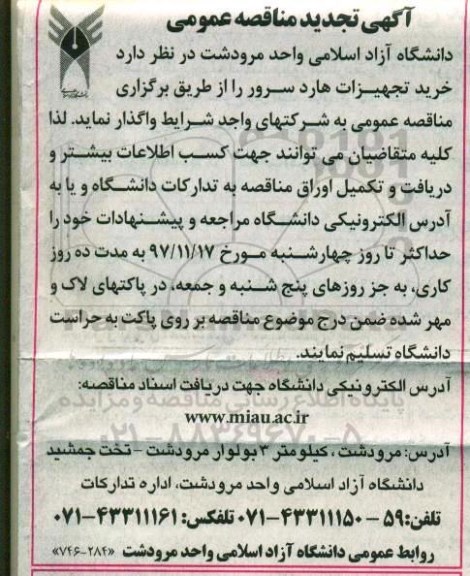 آگهی تجدید مناقصه عمومی
دانشگاه آزاد اسلامی واحد مرودشت در نظر دارد
خرید تجهیزات هارد سرور را از طریق برگزاری
مناقصه عمومی به شرکتهای واجد شرایط واگذار نماید. لذا
کلیه متقاضیان می توانند جهت کسب اطلاعات بیشتر و
دریافت و تکمیل اوراق مناقصه به تدارکات دانشگاه و یا به
آدرس الکترونیکی دانشگاه مراجعه و پیشنهادات خود را
حداکثر تا روز چهارشنبه مورخ ۹۷/۱۱/۱۷ به مدت ده روز
کاری، به جز روزهای پنج شنبه و جمعه، در پاکتهای لاک و
مهر شده ضمن درج موضوع مناقصه بر روی پاکت به حراست
دانشگاه تسلیم نمایند.
آدرس الکترونیکی دانشگاه جهت دریافت اسناد مناقصه:
پایگاه اطلاع رسانی مناقصه و مزایده
www.miau.ac.ir
۰۲۱-۸۸۳۴۹۶۷۰-۵
آدرس: مرودشت، کیلومتر ۳ بولوار مرودشت - تخت جمشید
دانشگاه آزاد اسلامی واحد مرودشت، اداره تدارکات
تلفن: ۵۹ - ۰۷۱-۴۳۳۱۱۱۵۰ تلفکس: ۰۷۱-۴۳۳۱۱۱۶۱
روابط عمومی دانشگاه آزاد اسلامی واحد مرودشت «۲۸۴-۷۴۶»